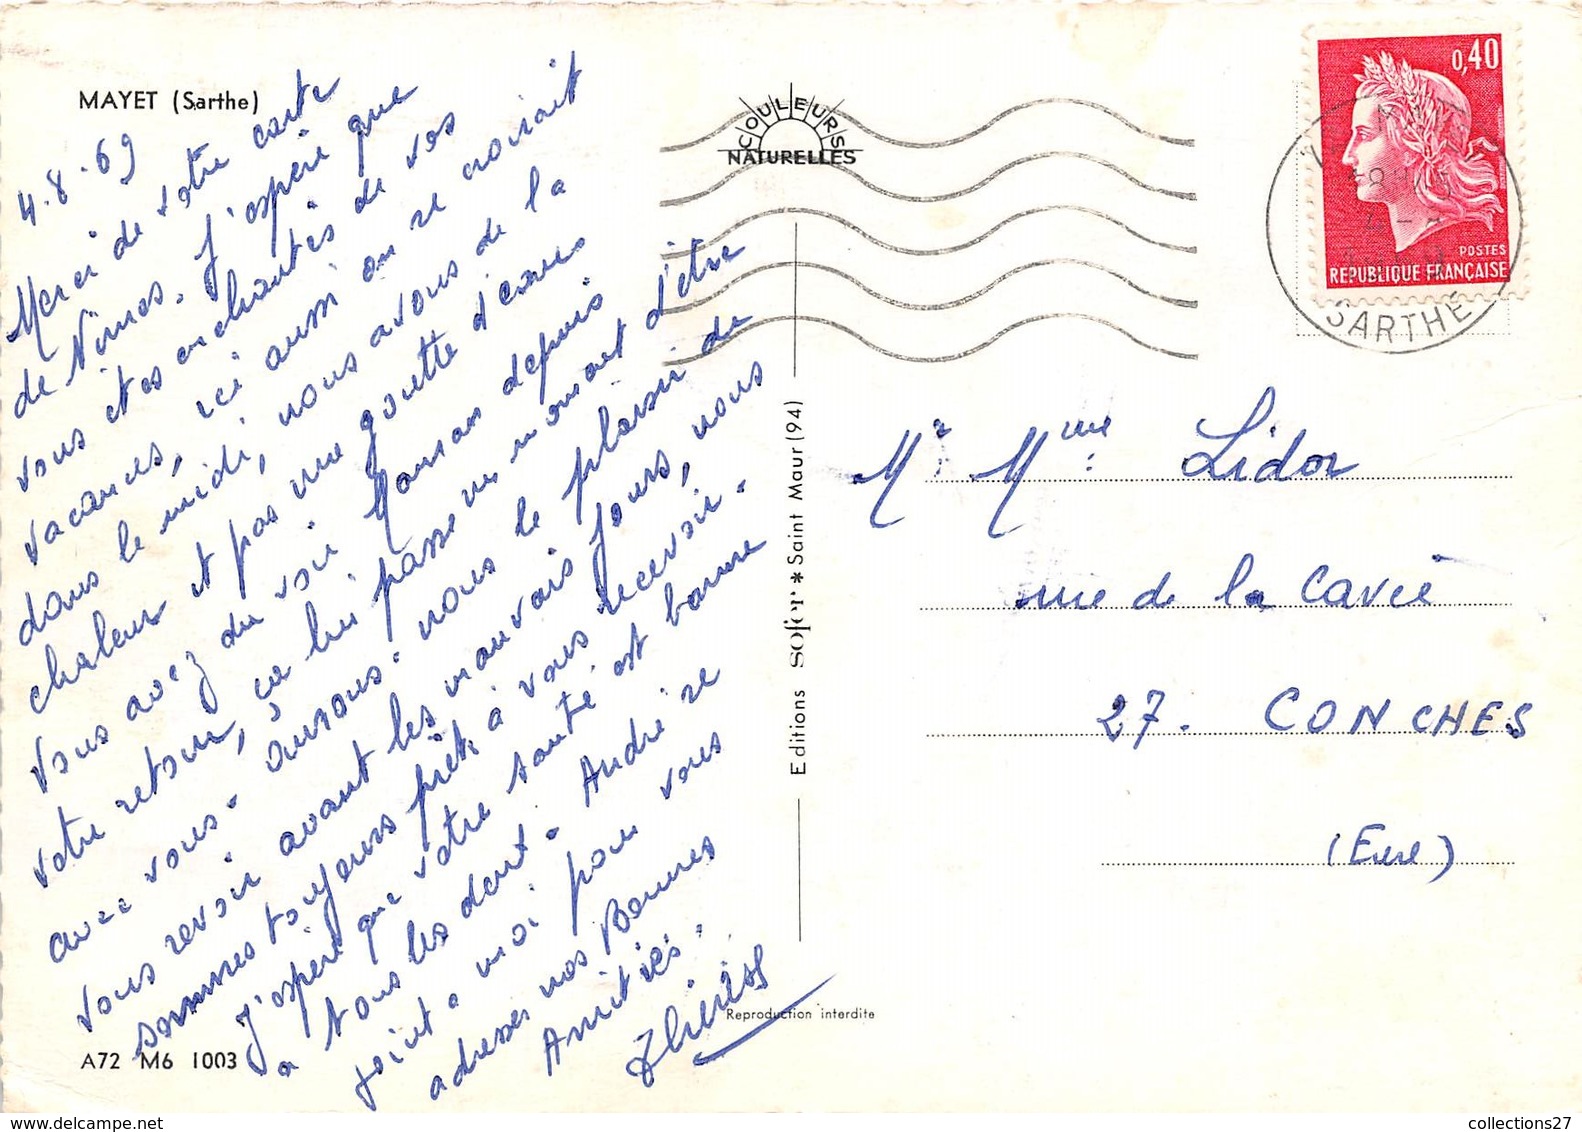 MAYET (Sarthe)
4.8.69
Merci de votre carte
de Nîmes. J'espère que
vous êtes enchantés de vos
vacances, ici aussi on se croirait
dans le midi, nous avons de la
chaleur et pas une goutte d'eau
vous avez du voir Mansan depuis
votre retour, ça lui passe un moment d'être
avec vous. nous le plaisir de
vous revoir avant les mauvais jours, nous
sommes toujours prêts à vous recevoir.
J'espère que votre santé est bonne
a tous les deux. Andrée se
joint a moi pour vous
adresser nos Bonnes
Amitiés.
COULEURS
NATURELLES
Editions sofer * Saint Maur (94)
Reproduction interdite
A72 M6 1003
0,40
POSTES
REPUBLIQUE FRANÇAISE
SARTHE
Mr Mme Lidor
rue de la Cavée
27. CONCHES
(Eure)
collections27